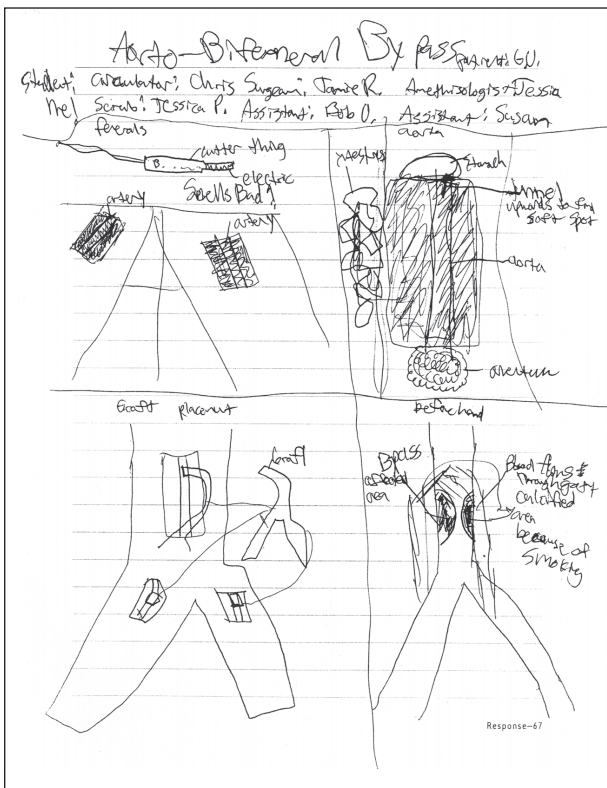 Aorto-Bifemeral By pass
patient: G.U.
Student: Circulator: Chris Surgeon: Jamie R. Anethisologist: Jessia
Me! Scrub: Jessica P. Assistant: Bob O. Assistant: Susan
femerals
cutter thing
electric
Smells Bad!
artery
artery
aorta
stomach
tunnel
upwards to find
soft spot
aorta
Graft placement
Graft
Beforehand
Bypass
affected
area
Blood flows
Through graft
calcified
area
because of
smoking
Response—67